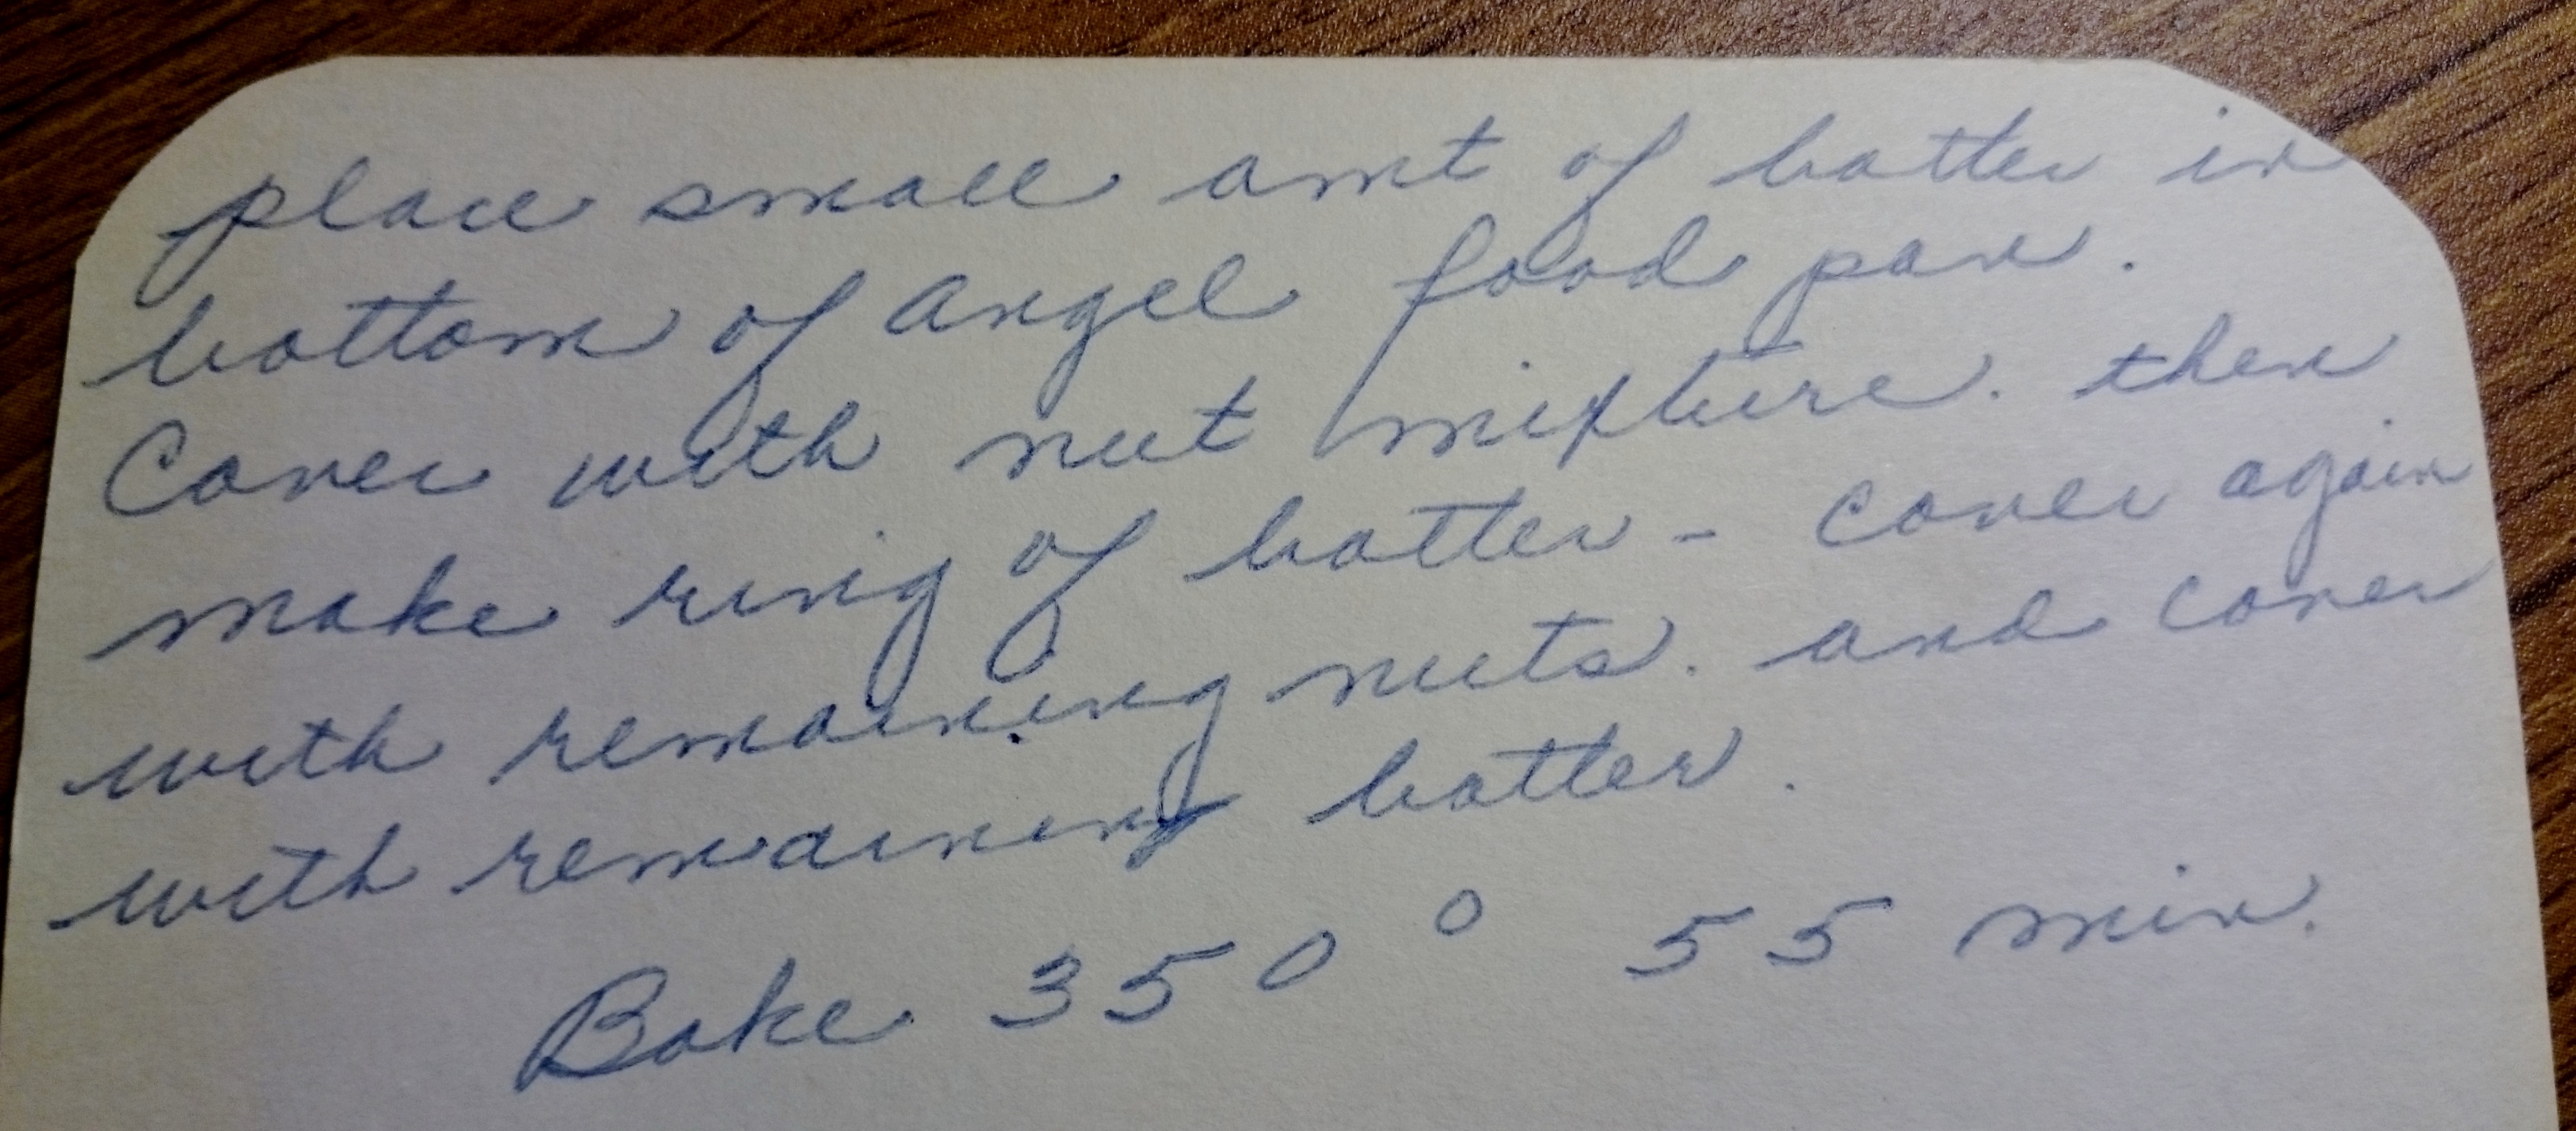 place small amt of batter in
bottom of angel food pan.
Cover with nut mixture. then
make ring of batter - cover again
with remaining nuts. and cover
with remaining batter.
Bake 350° 55 min.